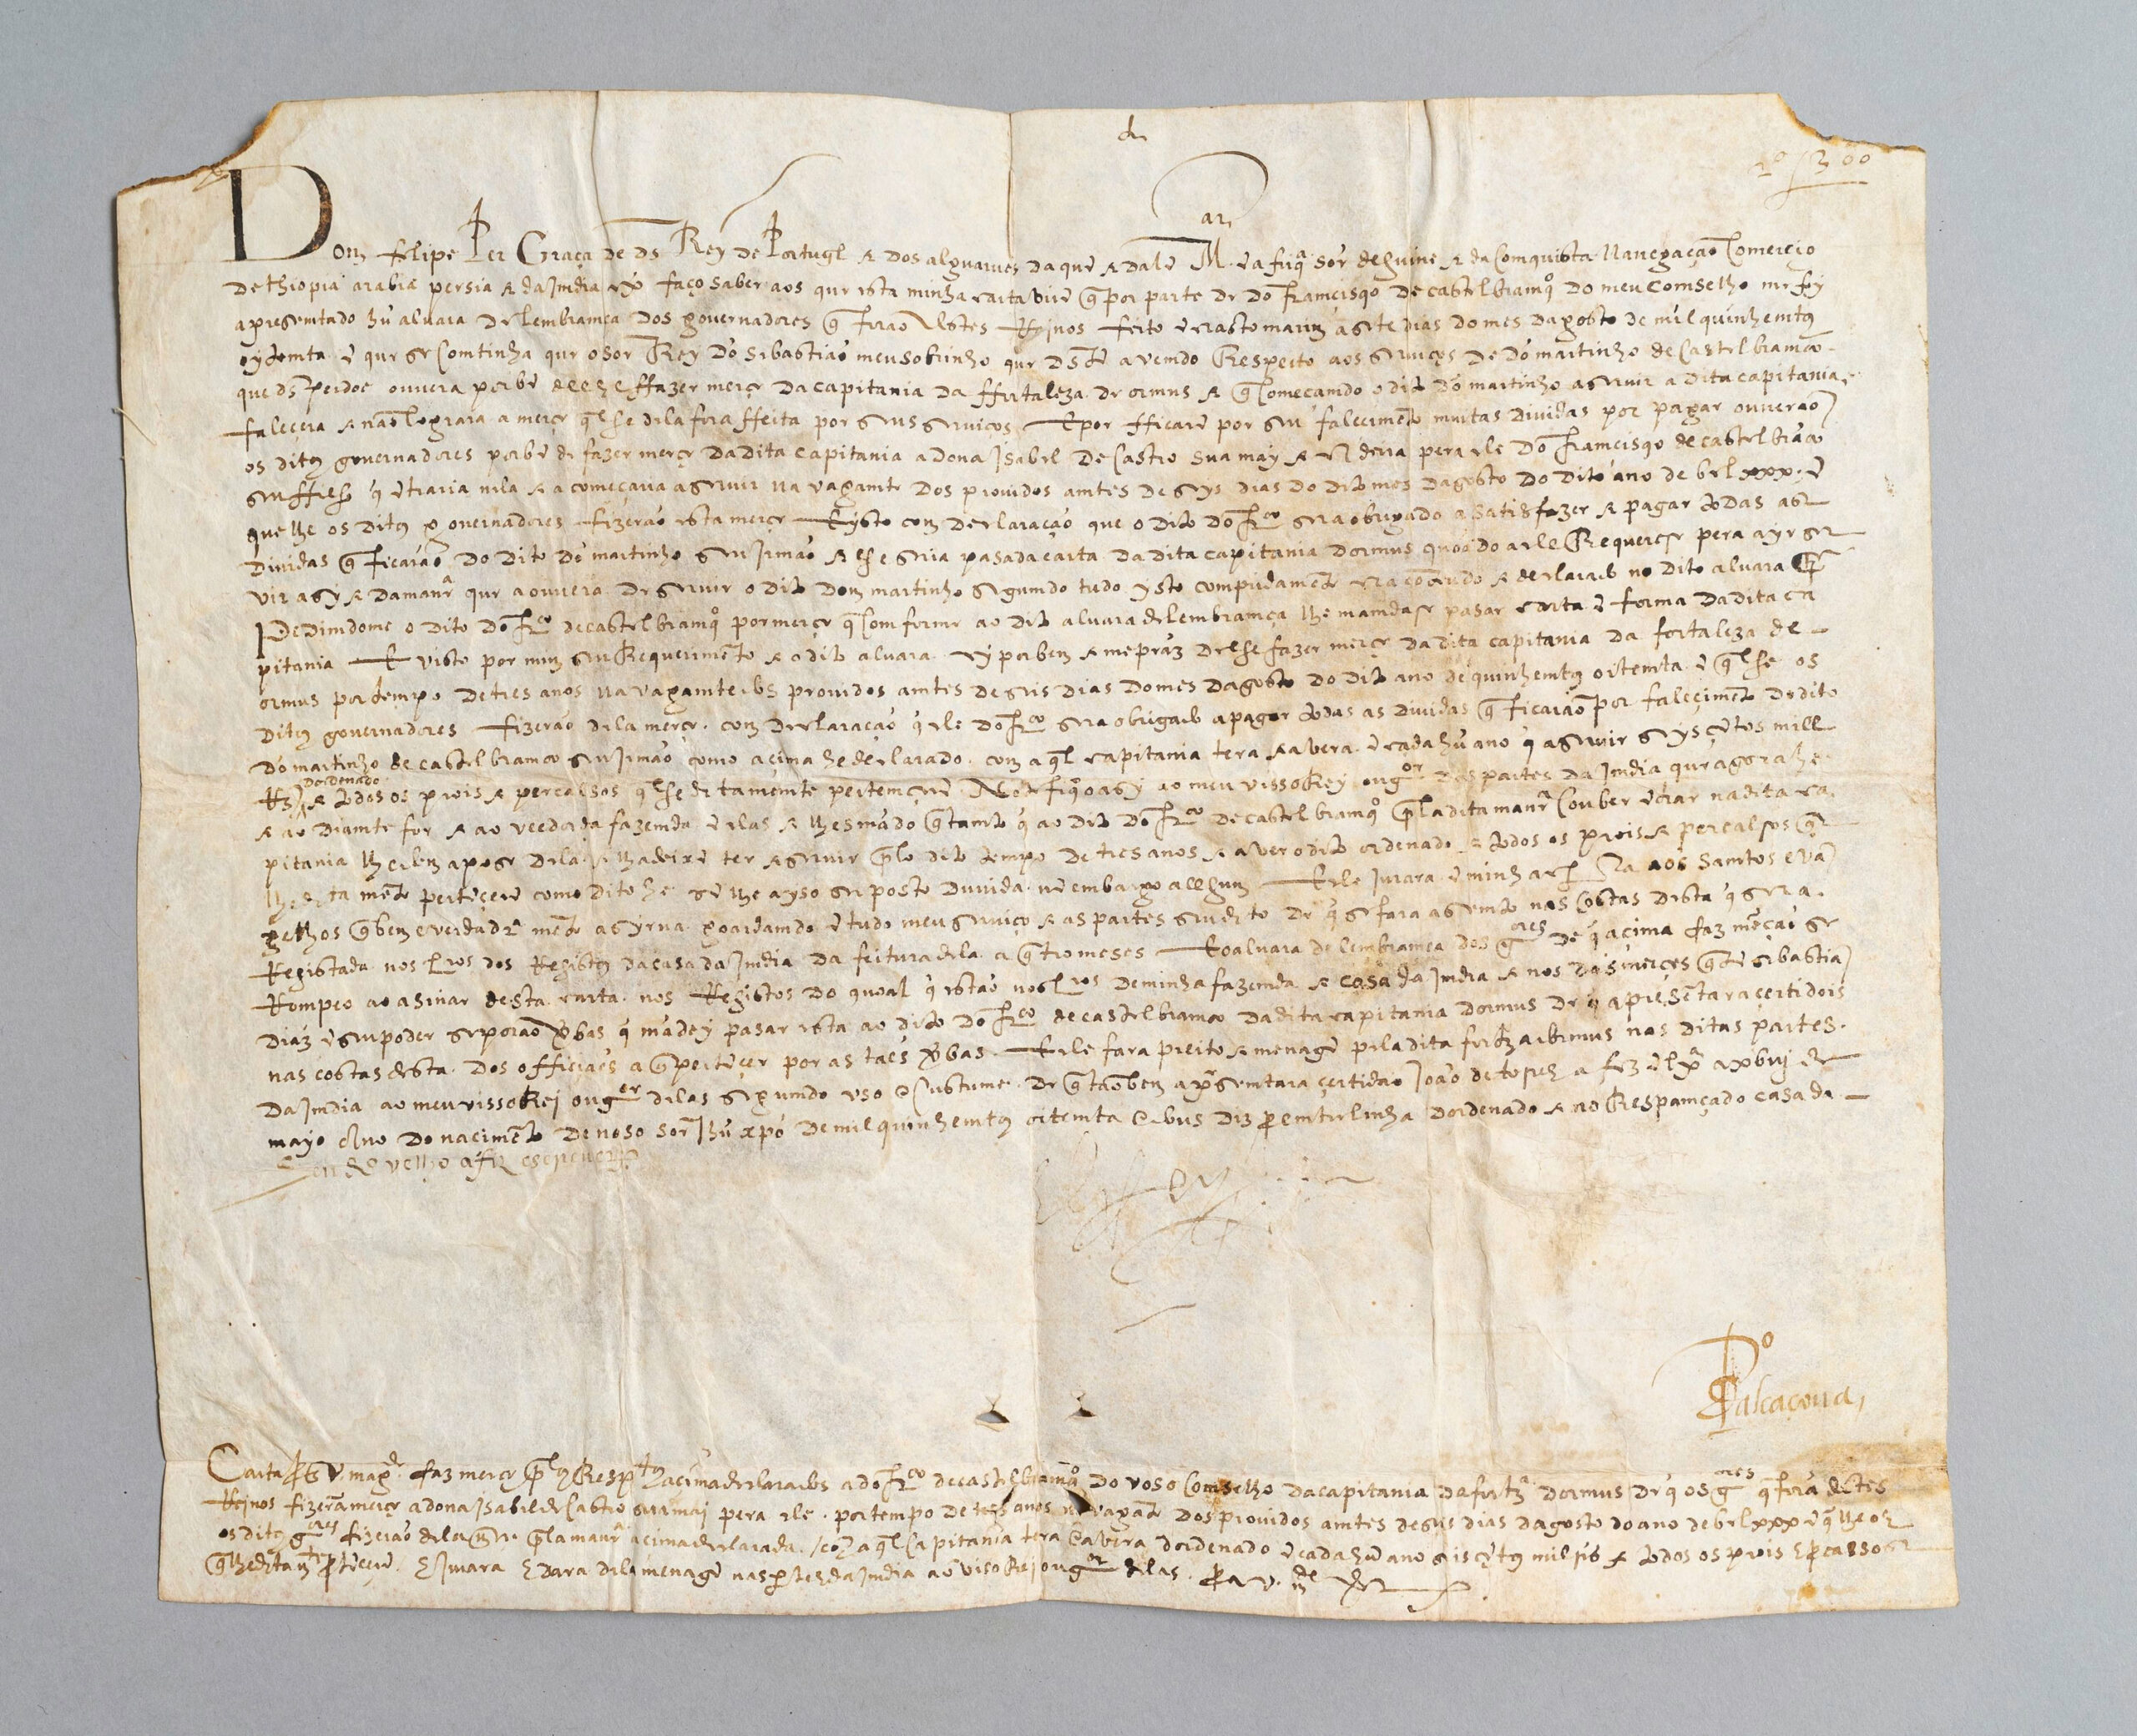 Dom felipe Per Graça de ds Rey de Portugl e dos alguarues daquē e dalē Mar ē afriqª sõr de guine e da Comquista Navegação Comerçio
dethiopia arabia persia e da Imdia faço saber aos que esta minha carta virē q por parte de dõ framcisqo de castelbramqº do meu comselho me foy
apresemtado hũ aluara de lembramça dos governadores q forão destes Reynos feito ē crastomarim a sete dias do mes dagosto de mil quinhemtos
oytemta ē que se comtinha que o sõr Rey dõ sebastião meu sobrinho que ds tē avemdo Respeito aos seruiços de dõ martinho de castelbramco
que ds perdoe ouvera por bē de lhe ffazer merçe da capitania da ffortaleza de ormus e q começamdo o dito dõ martinho a seruir a dita capitania
faleçera e não lograra a merçe q lhe dela fora ffeita por seus seruiços E por fficarē por seu falecimēto muitas dividas por pagar ouverão
os ditos governadores por bē de fazer merçe da dita capitania a dona Isabel de Castro sua mãy e pera ele dõ framcisqo de castelbrãco
seu ffilho q ētraria nela e a começaua a seruir na vagamte dos prouidos amtes de seys dias do dito mes dagosto do dito ano de blxxx ē
que lhe os ditos governadores fizerão esta merçe E ysto com declaração que o dito dõ frco sera obrigado a satisfazer e pagar todas as
dividas q ficarão do dito dõ martinho seu Irmão e lhe seria pasada carta da dita capitania dormus quãdo a ele Requerese pera a yr ser
vir asy e da manrª que a ouvera de seruir o dito dom martinho segumdo tudo ysto compridamēte era cõteudo e declarado no dito aluara
Pedimdome o dito dõ frco de castelbramqº por merçe q comforme ao dito aluara de lembramça lhe mamdase pasar carta ē forma da dita ca
pitania E visto por mim seu Requerimēto e o dito aluara ey por bem e me praz de lhe fazer merçe da dita capitania da fortaleza de
ormus por tempo de tres anos na vagamte dos prouidos amtes de seis dias do mes dagosto do dito ano de quinhemtos oitemta ē q lhe os
ditos governadores fizerão dela merçe com declaração q ele dõ frco sera obrigado a pagar todas as dividas q ficarão por faleçimēto do dito
dõ martinho de castelbramco seu Irmão como açima he declarado com a ql capitania tera e avera ē cada hũ ano q a seruir seys çētos mill
Rs dordenado e todos os prois e percalsos q lhe dereitamemte pertemçerē Notefiqº o asy ao meu visso Rey ou gor das partes da Imdia que agora he
e ao diamte for e ao veedor da fazemda ē elas e lhes mãdo q tamto q ao dito dõ frco de castelbramqº pla dita manrª couber ētrar na dita ca
pitania lhe dem a pose dela e lha deixē ter e seruir plo dito tempo de tres anos e aver o dito ordenado e todos os prois e percalsos q
lhe dereitamēte pertēçerē como dito he sē lhe a yso ser posto duvida nē embargo allgum E ele Jurara ē minha aos Samtos evã
gelhos q bem e verdadrª mēte a syrua goardamdo ē tudo meu seruiço e as partes seu direito de q se fara asemto nas Costas desta q sera
Registada nos lros dos Registos da casa da Imdia da feitura dela a qtro meses E o aluara de lembramça dos gores de q acima faz mēção se
Rompeo ao asinar desta carta nos Registos do quoal q estão nos lros de minha fazemda e casa da Imdia e nos das merçes q tē sebastiã
diaz ē seu poder se porão vbas q mãdey pasar esta ao dito dõ frco de castelbramco da dita capitania dormus de q apresētara çertidois
nas costas desta dos officiaes a q pertēçer por as taes vbas E ele fara preito e menagē pela dita fortza dormus nas ditas partes
da Imdia ao meu visso Rei ou gor delas segumdo uso e custume de q tãobem apsemtara çertidão João de torres a fez ē lxª a xbiij de
mayo Ano do nacimēto de noso sõr Jhũ xpõ de mil quinhemtos oitemta e dous diz por emtrelinha dordenado e no Respamçado casa da
velho a fiz escpever

Pº
dalcaçoua,
Carta pª V. magde faz merçe plos Resptos açima declarados a dõ frco de castelbramqº do voso Comselho da capitania da fortzª dormus de q os gores q forã destes
Reinos fizerã merçe a dona Isabel de Castro sua mai pera ele por tempo de tres anos na vagãte dos prouidos amtes de seis dias dagosto do ano de blxxx ē q lhe os
os ditos gores fizerão dela merçe pla manrª açima declarada com a ql Capitania tera e avera dordenado ē cada hũ ano seis çētos mil rs e todos os prois e percalsos
q lhe dertamte ptēçerē E Jurara e dara dela menagē nas ptes da Imdia ao viso Rei ou gor delas Pª V. mde ver